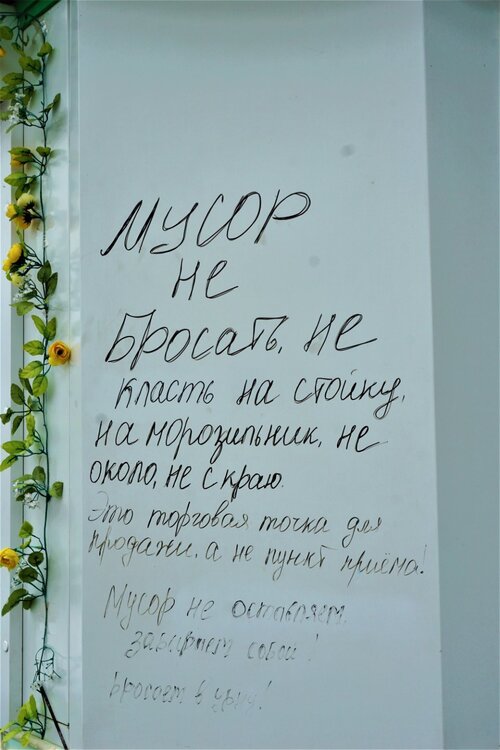 Мусор
не
Бросать, не
класть на стойку,
на морозильник, не
около, не с краю.
Это торговая точка для
продажи, а не пункт приёма!
Мусор не оставляем,
забираем собой!
Бросаем в урну!